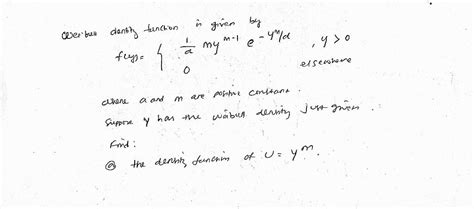 Weibull density function is given by
f(y) = { 1/α m y^{m-1} e^{-y^m/α} , y > 0
0 elsewhere
where α and m are positive constant.
Suppose y has the weibull density just given.
Find:
ⓐ the density function of U = y^m.